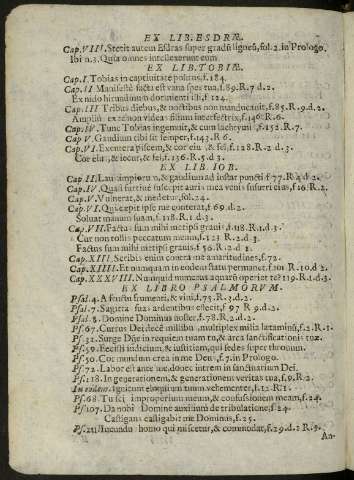 EX LIB. ESDRÆ.
Cap. VIII. Stetit autem Esdras super gradũ ligneũ, fol. 2. in Prologo.
Ibi n. 3. Quia omnes intellexerunt eum
EX LIB. TOBIÆ.
Cap. I. Tobias in captiuitate positus, f. 184.
Cap. II Manifestè facta est vana spes tua, f. 89. R. 7 d. 2.
Ex nido hirundinum dormienti illi, f. 124.
Cap. III Tribus diebus, & noctibus non manducauit, f. 85. R. 9. d. 2.
Cap. IV. Tunc Tobias ingemuit, & cum lachrymis, f. 152. R. 7.
Cap. V. Gaudium tibi sit semper, f. 143. R 6.
Cap. VI. Exentera piscem, & cor eius, & fel, f. 128. R. 2 d. 3.
Cor eius, & iecur, & fel, f. 136. R. 5 d. 3.
EX LIB. IOB.
Cap II. Laus impiorum, & gaudium ad instar puncti f. 77. R 4 d. 2.
Cap. IV. Quasi furtiuè suscepit auris mea venas susurri eius, f. 16. R 2.
Cap. V. Vulnerat, & medetur, fol. 24.
Cap. VI. Qui cœpit ipse me conterat, f. 69. d. 2.
Soluat manum suam, f. 118. R. 1 d. 3.
Cap. VII. Factus sum mihi metipsi grauis, f. 118. R. 1. d. 3.
Cur non tollis peccatum meum, f. 123 R. 2. d 3.
Factus sum mihi metipsi grauis, f. 56. R. 2 d 3.
Cap. XIII. Scribis enim contra me amaritudines, f. 72.
Cap. XIIII. Et nunquam in eodem statu permanet, f. 101 R. 10. d 2.
Cap. XXXVIII. Nunquid nunc tu aquarũ operiet te? 119. R. 1. d. 3.
EX LIBRO PSALMORVM.
Psal. 4. A fructu frumenti, & vini, f. 75. R. 3. d. 2.
Psal. 7. Sagitta sua ardentibus effecit, f 97 R 9. d. 2.
Psal. 8. Domine Dominus noster, f. 78. R. 2. d. 2.
Ps. 67. Currus Dei decẽ millibus, multiplex milia lætantiũ, f. 2. R. 1.
Ps. 31. Surge Dñe in requiem tuam tu, & arca sanctificationis tuæ.
Ps. 59. Fecisti iudicium, & iustitiam, qui sedes super thronum.
Ps. 50. Cor mundum crea in me Deus, f. 7. in Prologo.
Ps. 72. Labor est ante me donec intrem in sanctuarium Dei.
Ps. 118. In generationem, & generationem veritas tua, f. 9. R. 2.
In eodem. Ignitum eloquium tuum vehementer, f. 12. R 1.
Ps. 68. Tu scis improperium meum, & confusionem meam, f. 24.
Ps. 107. Da nobis Domine auxilium de tribulatione, f 24.
Castigans castigabit me Dominus, f. 25.
Ps. 211 Iucundus homo qui miseretur, & commodat, f. 29. d. 2 R. 5.
An-